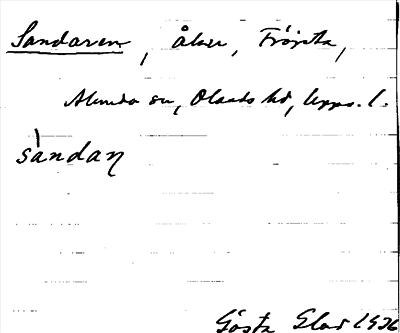 Sandaren, åker, Fröjsta,
Almunda sn, Olands hd, Upps. l.
sàndaη
Gösta Elar 1936